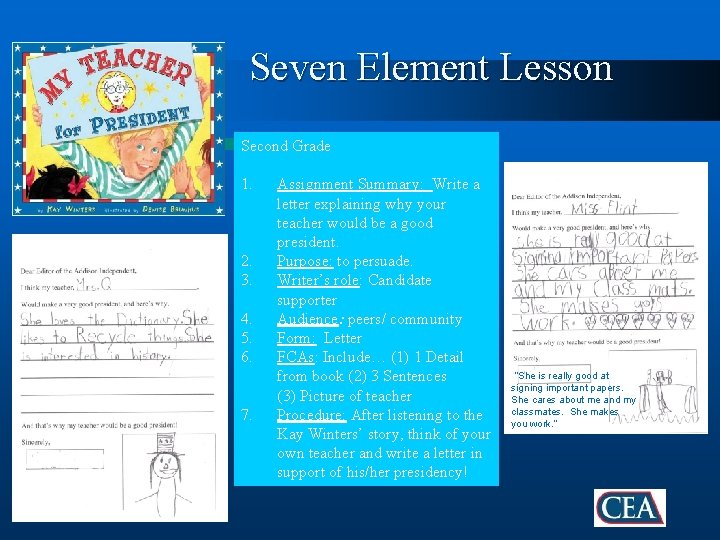 Seven Element Lesson
MY TEACHER
for PRESIDENT
BY KAY WINTERS
ILLUSTRATED BY DENISE BRUNKUS
Second Grade
1. Assignment Summary: Write a
letter explaining why your
teacher would be a good
president.
2. Purpose: to persuade.
3. Writer’s role: Candidate
supporter
4. Audience: peers/ community
5. Form: Letter
6. FCAs: Include… (1) 1 Detail
from book (2) 3 Sentences
(3) Picture of teacher
7. Procedure: After listening to the
Kay Winters’ story, think of your
own teacher and write a letter in
support of his/her presidency!
Dear Editor of the Addison Independent,
I think my teacher, Mrs. G
Would make a very good president, and here's why.
She loves the Dictionary. She
likes to Recycle things. She
is interested in history.
And that's why my teacher would be a good president!
Sincerely,
Dear Editor of the Addison Independent,
I think my teacher, Miss Flint
Would make a very good president, and here's why.
She is really good at
signing important Papers.
She cars about me
and my Class mats.
She makes us
work.
And that's why my teacher would be a good president!
Sincerely,
“She is really good at
signing important papers.
She cares about me and my
classmates. She makes
you work.”
CEA